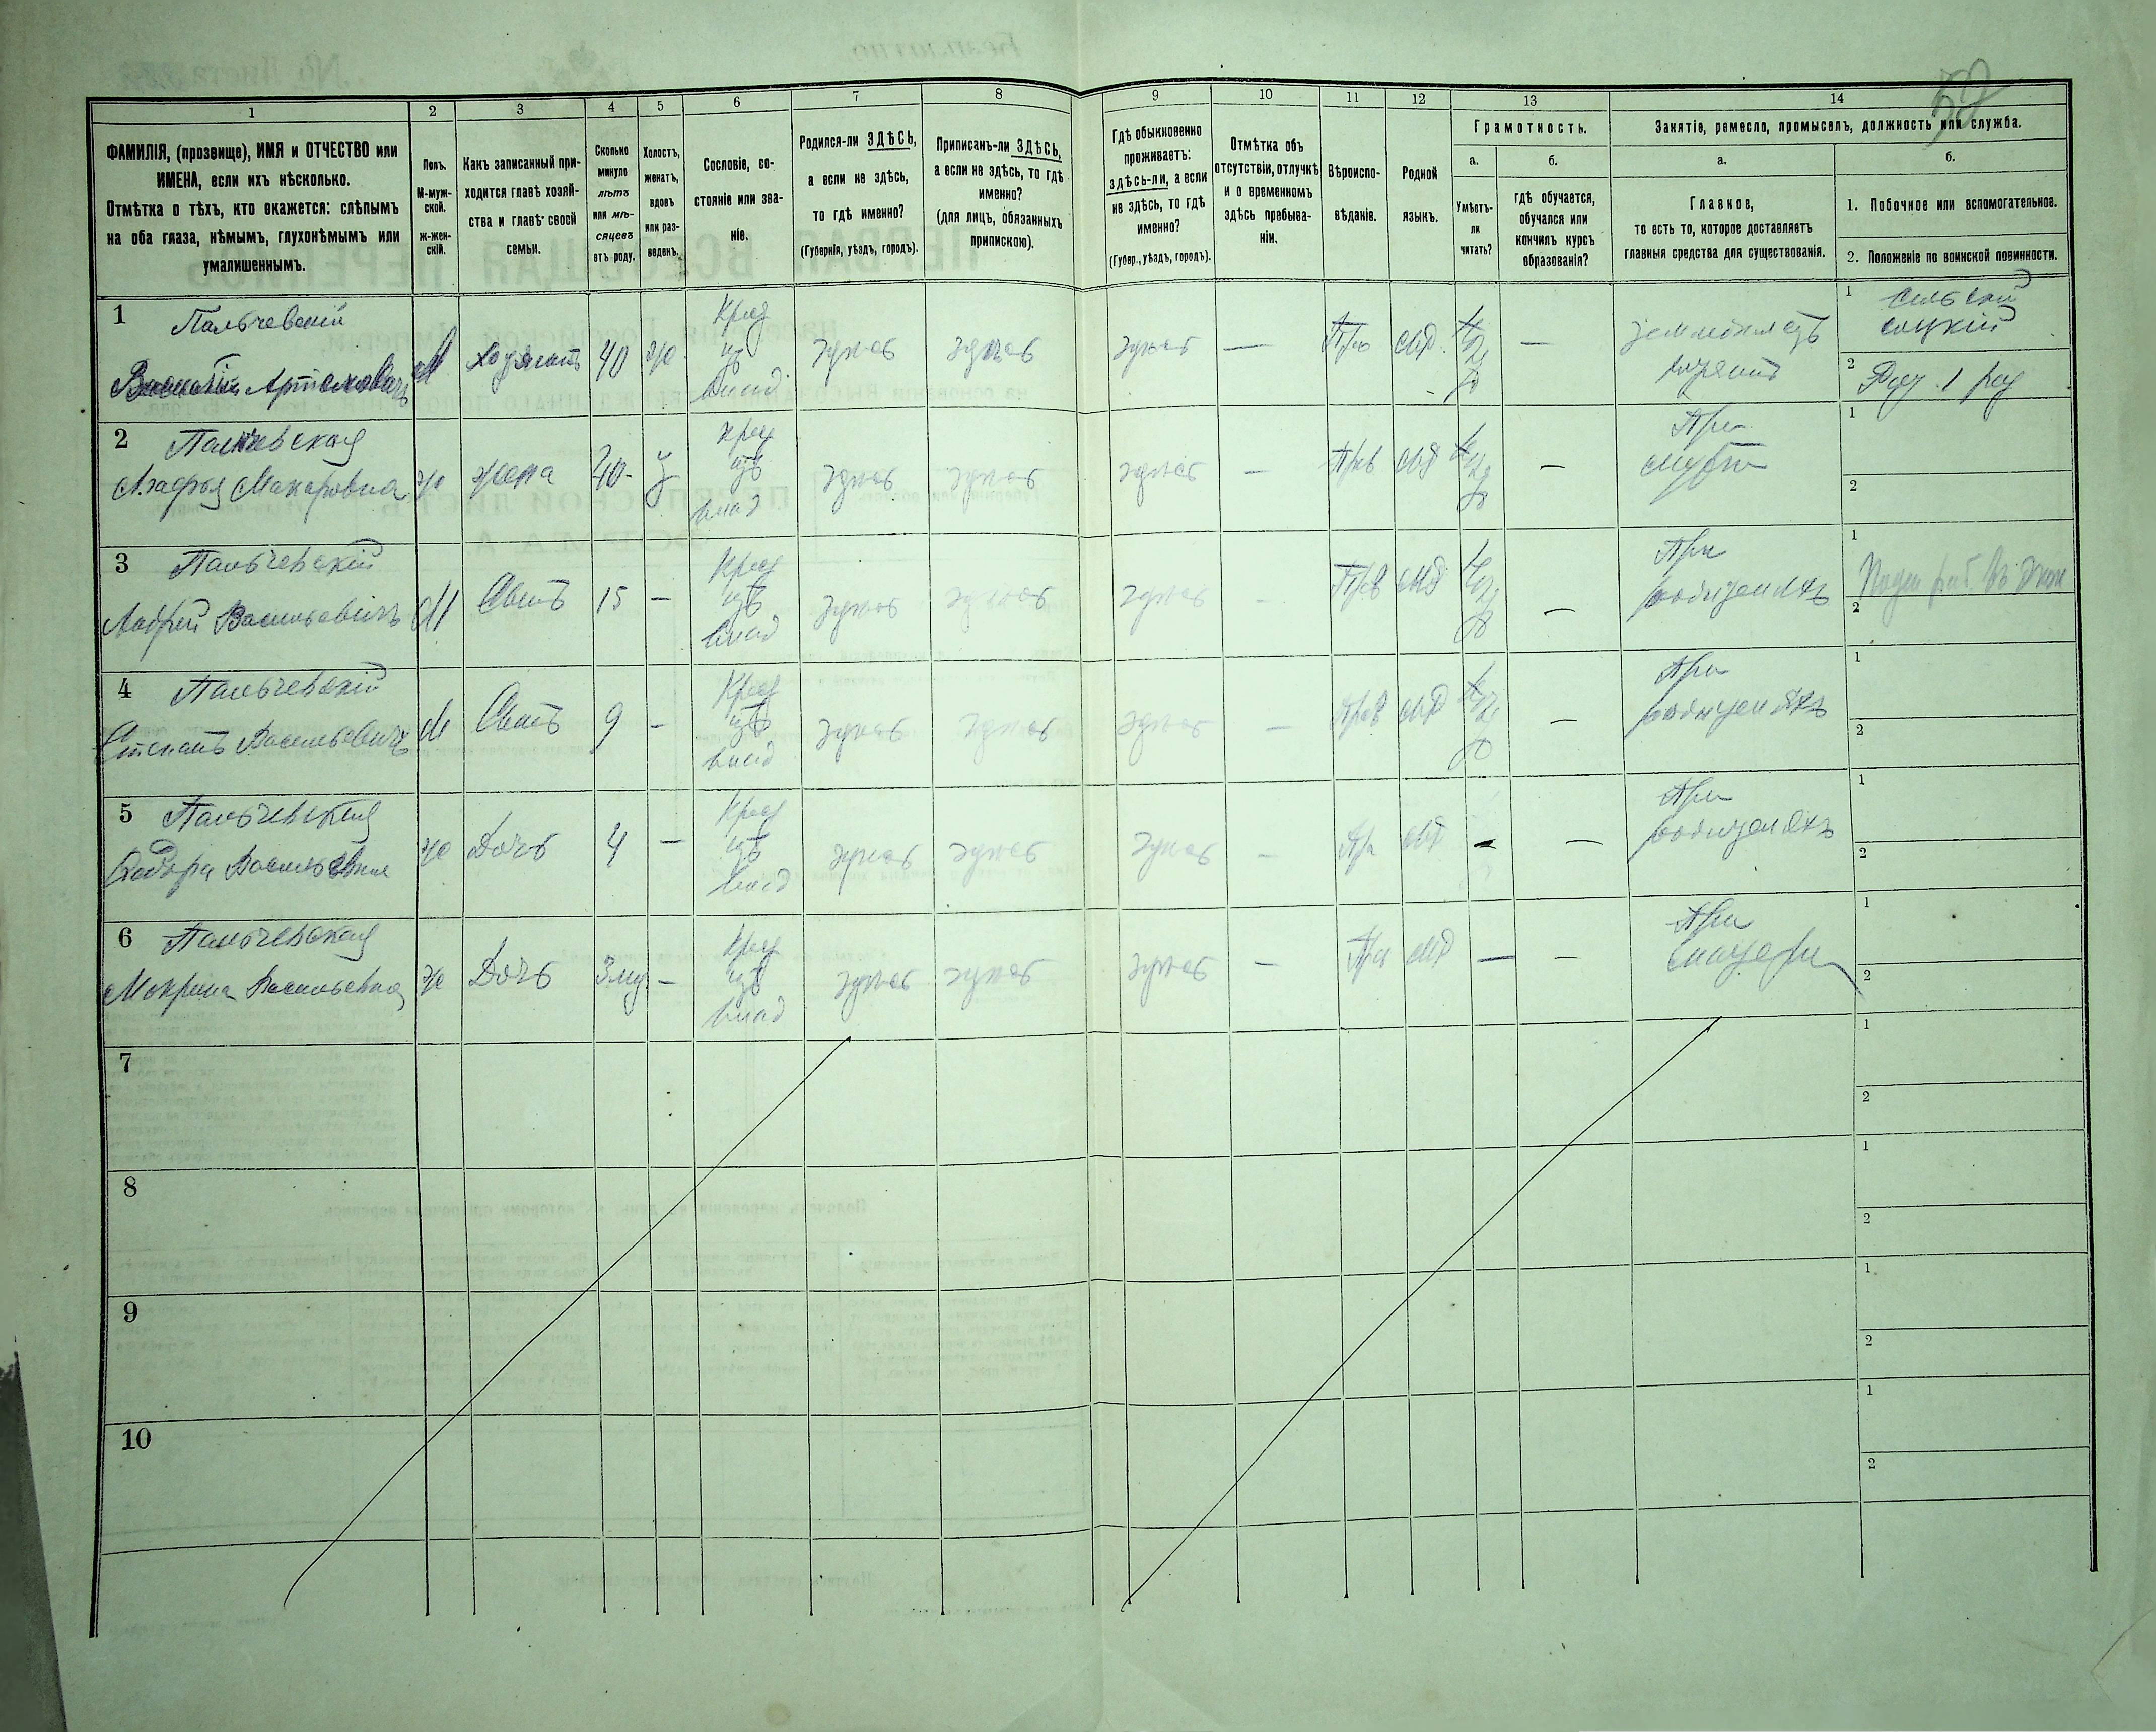 58
1 2 3 4 5 6 7 8 9 10 11 12 13 14
ФАМИЛІЯ, (прозвище), ИМЯ и ОТЧЕСТВО или
ИМЕНА, если ихъ нѣсколько.
Отмѣтка о тѣхъ, кто окажется: слѣпымъ
на оба глаза, нѣмымъ, глухонѣмымъ или
умалишеннымъ.
Полъ.
М-муж-
ской.
ж-жен-
скій.
Какъ записанный при-
ходится главѣ хозяй-
ства и главѣ своей
семьи.
Сколько
минуло
лѣтъ
или мѣ-
сяцевъ
отъ роду.
Холостъ,
женатъ,
вдовъ
или раз-
веденъ.
Сословіе, со-
стояніе или зва-
ніе.
Родился-ли ЗДѢСЬ,
а если не здѣсь,
то гдѣ именно?
(Губернія, уѣздъ, городъ).
Приписанъ-ли ЗДѢСЬ,
а если не здѣсь, то гдѣ
именно?
(для лицъ, обязанныхъ
припискою).
Гдѣ обыкновенно
проживаетъ:
здѣсь-ли, а если
не здѣсь, то гдѣ
именно?
(Губер., уѣздъ, городъ).
Отмѣтка объ
отсутствіи, отлучкѣ
и о временномъ
здѣсь пребыва-
ніи.
Вѣроиспо-
вѣданіе.
Родной
языкъ.
Грамотность.
а.
Умѣетъ-
ли
читать?
б.
гдѣ обучается,
обучался или
кончилъ курсъ
образованія?
Занятіе, ремесло, промыселъ, должность или служба.
а.
Главное,
то есть то, которое доставляетъ
главныя средства для существованія.
б.
1. Побочное или вспомогательное.
2. Положеніе по воинской повинности.
1 Пальчевскій
Артемовичъ М хозяинъ 40 ж Крес
изъ
владѣ здѣсь здѣсь здѣсь — мд —
хозяинъ
1 сельскій
2 1 раз
2 Пальчевская
Агафья Макаровна ж жена 40 з крес
изъ
влад здѣсь здѣсь здѣсь — Прав мд —
При
мужѣ
1
2
3 Пальчевскій
Андрей Васильевичъ М Сынъ 15 — Крес
изъ
влад здѣсь здѣсь здѣсь — Прав мд —
При
родителяхъ
1
2
4 Пальчевскій
Степанъ Васильевичъ М Сынъ 9 — Крес
изъ
влад здѣсь здѣсь здѣсь — Прав мд —
При
родителяхъ
1
2
5 Пальчевская
Васильевна ж Дочь 4 — Крес
изъ
влад здѣсь здѣсь здѣсь — Пра мд — —
При
родителяхъ
1
2
6 Пальчевская
Мокрина Васильевна ж Дочь 3 м — Крес
изъ
влад здѣсь здѣсь здѣсь — Пра мд — —
При
матери
1
2
7
1
2
8
1
2
9
1
2
10
1
2